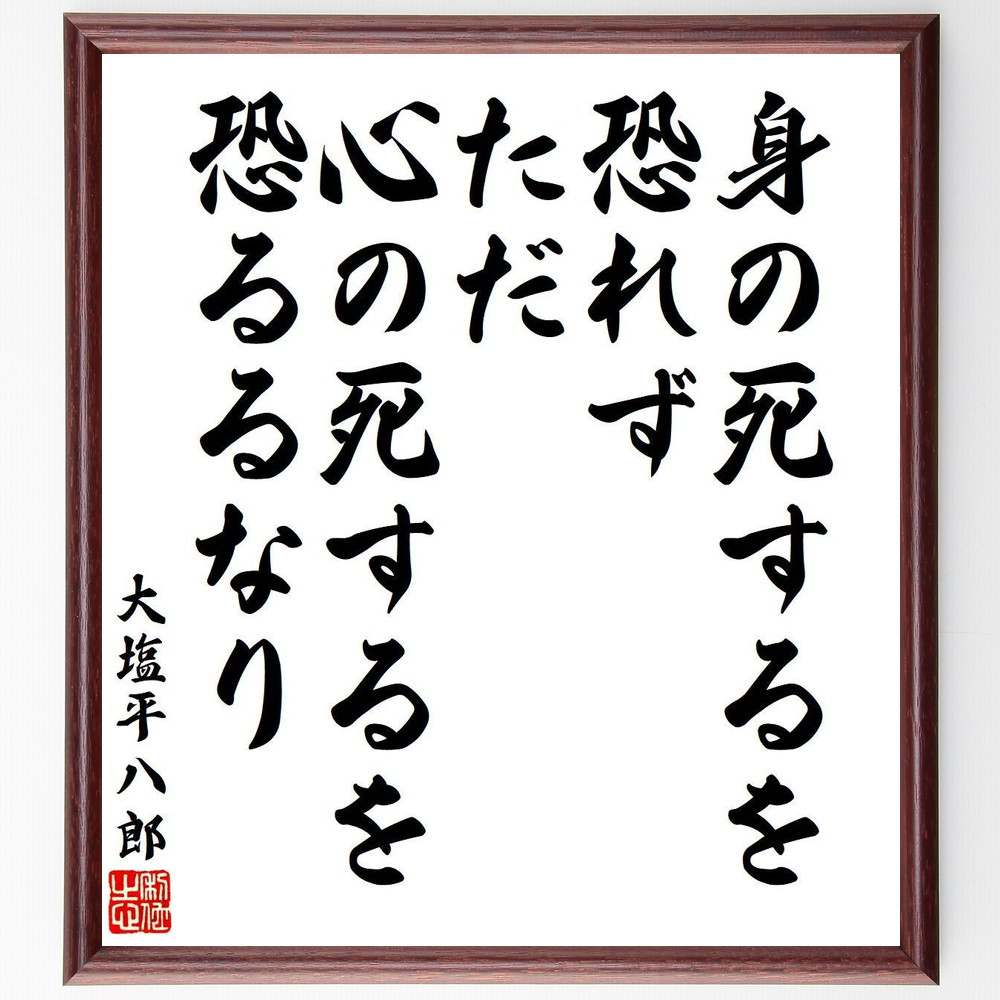 身の死するを
恐れず
ただ
心の死するを
恐るるなり
大塩平八郎